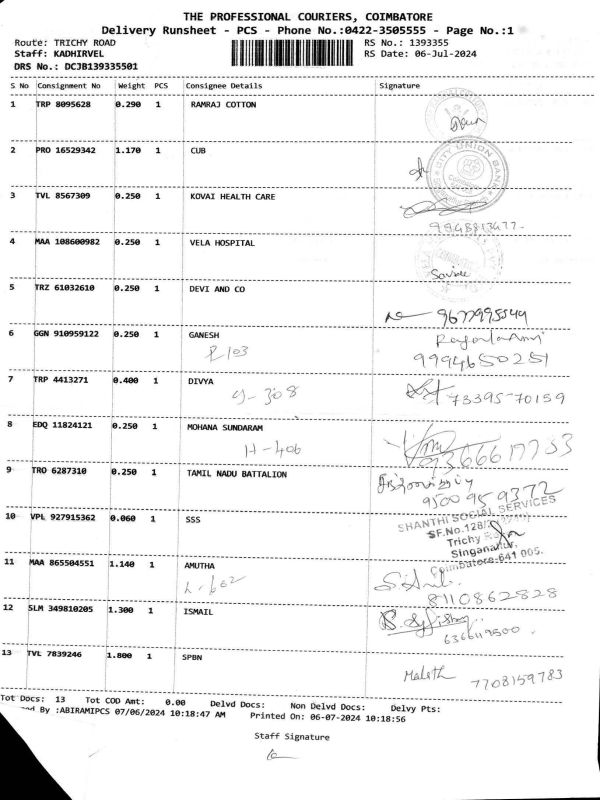 THE PROFESSIONAL COURIERS, COIMBATORE
Delivery Runsheet - PCS - Phone No.:0422-3505555 - Page No.:1
Route: TRICHY ROAD RS No.: 1393355
Staff: KADHIRVEL RS Date: 06-Jul-2024
DRS No.: DCJB139335501
S No Consignment No Weight PCS Consignee Details Signature
1 TRP 8095628 0.290 1 RAMRAJ COTTON
2 PRO 16529342 1.170 1 CUB
CITY UNION BANK
3 TVL 8567309 0.250 1 KOVAI HEALTH CARE
9948813477
4 MAA 108600982 0.250 1 VELA HOSPITAL
5 TRZ 61032610 0.250 1 DEVI AND CO
9677995549
6 GGN 910959122 0.250 1 GANESH
P103
9994650251
7 TRP 4413271 0.400 1 DIVYA
G-308 73395-70159
8 EDQ 11824121 0.250 1 MOHANA SUNDARAM
H-406
9 TRO 6287310 0.250 1 TAMIL NADU BATTALION
9500 95 9372
10 VPL 927915362 0.060 1 SSS
SHANTHI SOCIAL SERVICES
SF.No.128/
Trichy
Singanallur,
Coimbatore-641 005.
11 MAA 865504551 1.140 1 AMUTHA
8110862828
12 SLM 349810205 1.300 1 ISMAIL
6366119500
13 TVL 7839246 1.800 1 SPBN
7708159783
Tot Docs: 13 Tot COD Amt: 0.00 Delvd Docs: Non Delvd Docs: Delvy Pts:
By :ABIRAMIPCS 07/06/2024 10:18:47 AM Printed On: 06-07-2024 10:18:56
Staff Signature